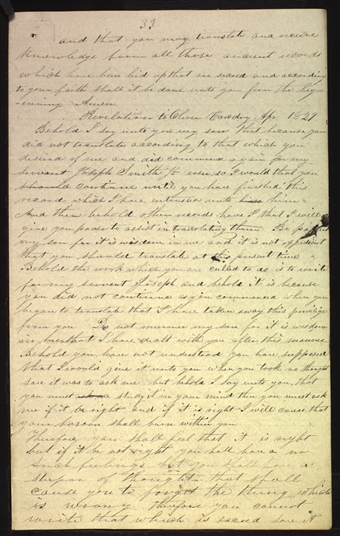 33
and that you may translate and receive
knowledge from all those ancient records
which have been hid up that are sacred and according
to your faith shall it be done unto you
Amen
Revelation to Oliver Cowdry Apr 1829
Behold I say unto you my son that because you
did not translate according to that which you
desired of me and did commence again for my
servant Joseph Smith Jr even so I would that you
should continue until you have finished this
record which I have intrusted unto him
And then behold other records have I that I will
give you power to assist in translating them Be patient
my son for it is wisdom in me and it is not expedient
that you should translate at this present time
Behold the work which you are called to do is to write
for my servant Joseph and behold it is because
you did not continue as you commenced when you
began to translate that I have taken away this privilege
from you Do not murmur my son for it is wisdom
in me that I have dealt with you after this manner
Behold you have not understood you have supposed
that I would give it unto you when you took no thought
save it was to ask me but behold I say unto you that
you must study it in your mind then you must ask
me if it be right and if it is right I will cause that
your bosom shall burn within you
Therefore you shall feel that it is right
but if it be not right you shall have no
such feelings but you shall have a
stupor of thought that shall
cause you to forget the thing which
is wrong therefore you cannot
write that which is sacred save it